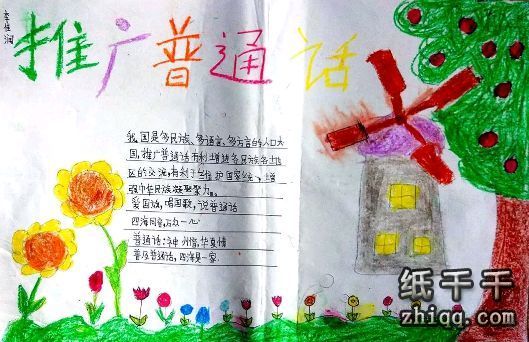 推广普通话
我国是多民族、多语言、多方言的人口大
国,推广普通话有利增进各民族各地
区的交流,有利于维护国家统一,增
强中华民族凝聚力。
爱国旗,唱国歌,说普通话
四海同音,万众一心
普通话:神州情,华夏情
普及普通话,四海是一家
纸千千
zhiqq.com